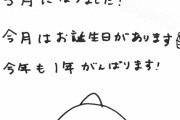 今月になりました!
今月はお誕生日があります
今年も1年がんばります!